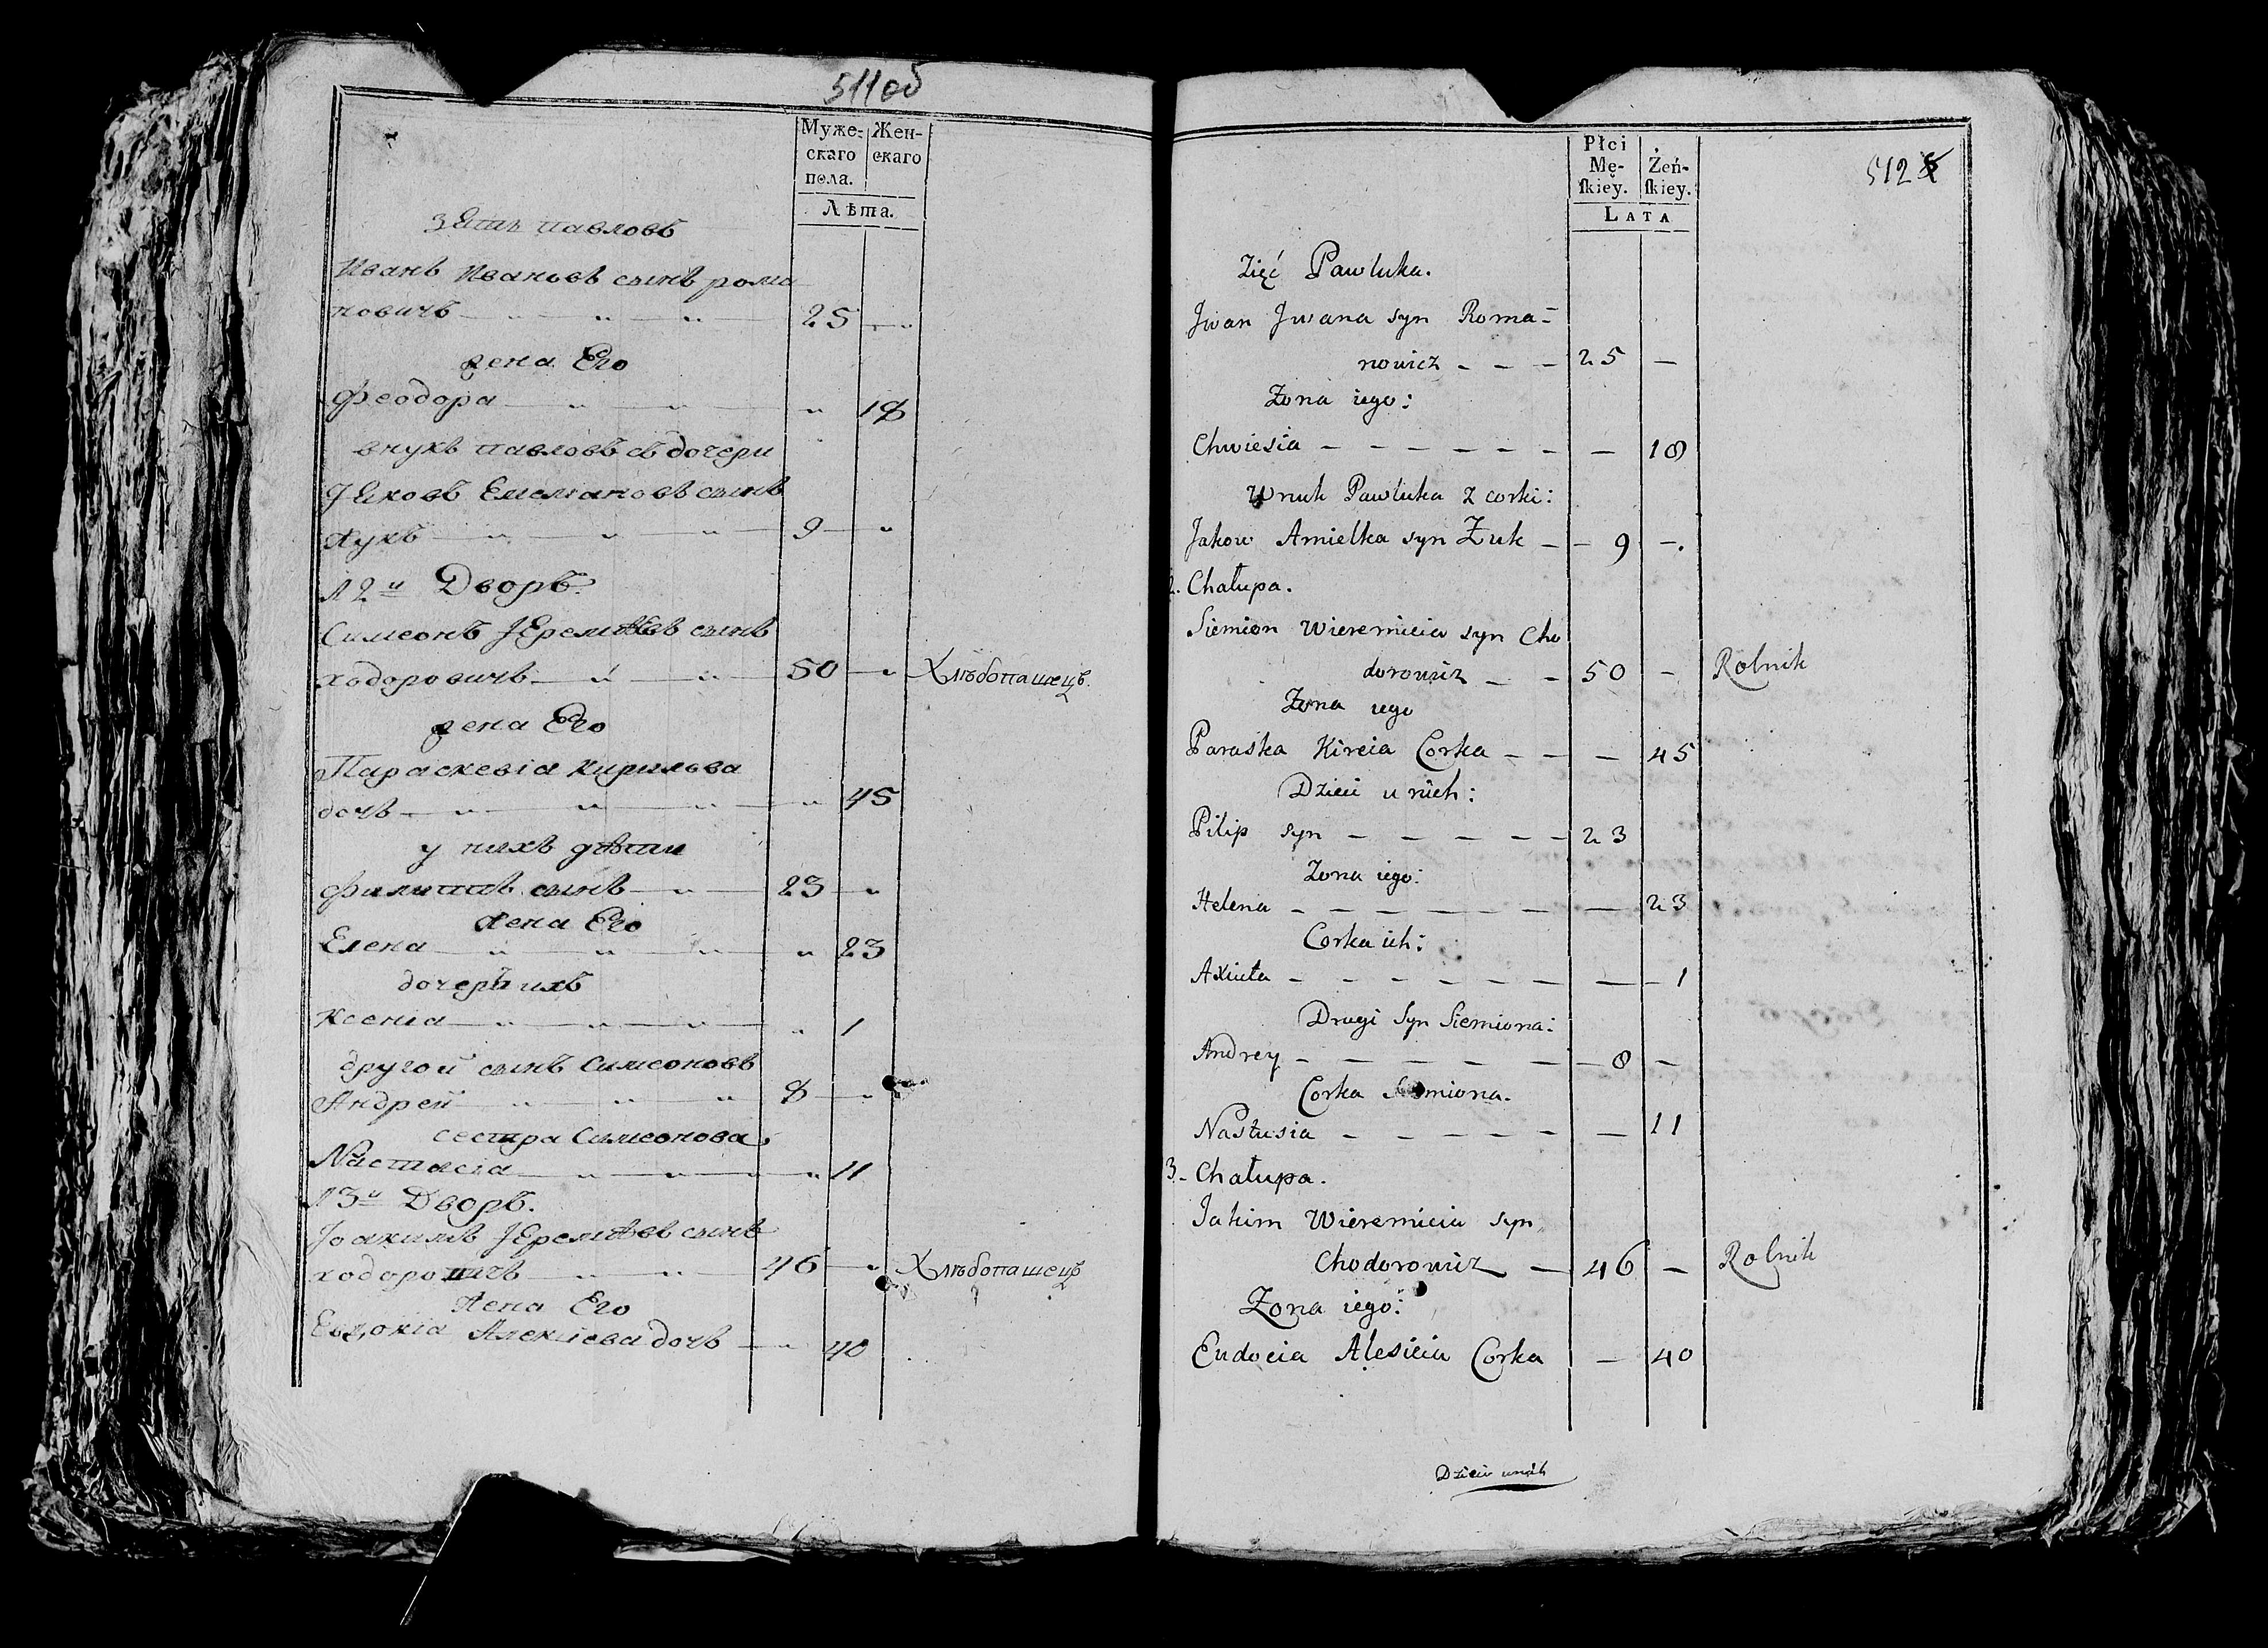 511 об
Муже- Жен-
скаго скаго
пола.
Лѣта.
зять павловъ
Иванъ Ивановъ сынъ рома
новичъ 25
жена Его
Феодора 18
внукъ павловъ съ дочери
Яковъ Емельяновъ сынъ
жукъ 9
12й Дворъ.
Симеонъ Іеремѣевъ сынъ
ходоровичъ 50 Хлѣбопашецъ.
жена Его
Параскевіа кирилова
дочь 45
у нихъ дѣти
Филиппъ сынъ 23
жена Его
Елена 23
дочерь ихъ
Ксеніа 1
другой сынъ Симеоновъ
Андрей 8
сестра Симеонова
Настасіа 11
13й Дворъ.
Іоакимъ Іеремѣевъ сынъ
46 Хлѣбопашецъ
жена Его
Евдокіа Алексіева дочь 40
512
Płci
Mę- Żeń-
skiey. skiey.
LATA
Zięć Pawluka.
Jwan Jwana syn Roma-
nowicz - - - 25 -
Żona iego:
Chwiesia - - - - - - - 18
Wnuk Pawluka z corki:
Jakow Amielka syn Żuk - - 9 -.
2. Chałupa.
Siemion Wieremieia syn Cho
dorowicz - - 50 - Rolnik
Żona iego
Paraska Kireia Corka - - - 45
Dzieci u nich:
Pilip syn - - - - - 23
Żona iego:
Helena - - - - - - - 23
Corka ich:
Axiuta - - - - - - - - 1
Drugi Syn Siemiona:
Andrey - - - - - - - 8 -
Corka Siemiona.
Nastusia - - - - - - 11
3. Chałupa.
Jakim Wieremieia syn
Chodorowicz - 46 - Rolnik
Żona iego:
Eudocia Alesieia Corka - 40
Dzieci unich